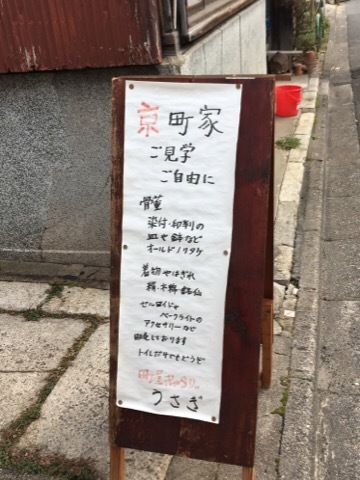 京町家
ご見学
ご自由に
骨董
染付・印判の
皿や鉢など
オールドノリタケ
着物やはぎれ
絹・木綿・銘仙
セルロイドや
ベークライトの
アクセサリーなど
販売しております
トイレだけでもどうぞ
うさぎ